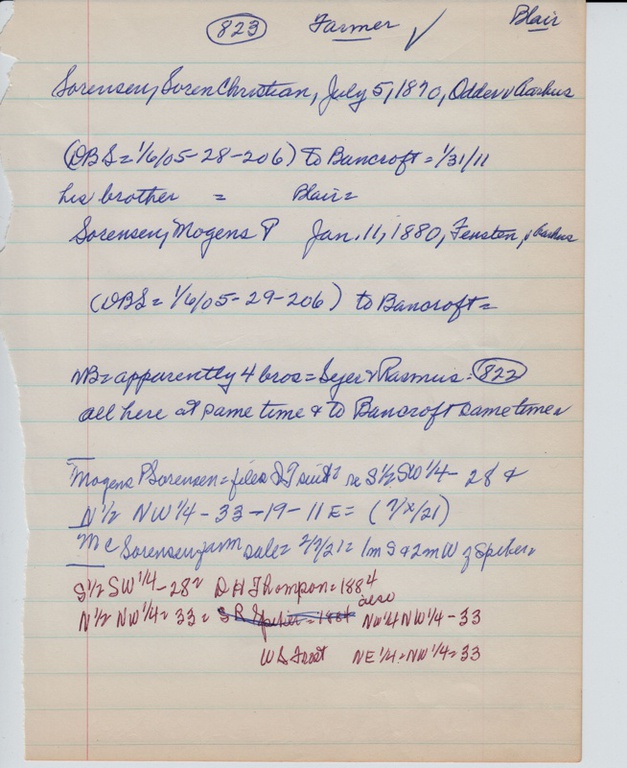 823 Farmer ✓ Blair
Sorensen, Soren Christian, July 5, 1870, Odder v Aarhus
(DBS = 1/6/05 - 28 - 206) to Bancroft = 1/31/11
his brother = Blair =
Sorensen, Mogens P Jan. 11, 1880, Fensten, v Aarhus
(DBS = 1/6/05 - 29 - 206) to Bancroft =
NB = apparently 4 bros = & Rasmus = 822
all here at same time & to Bancroft same time
Mogens P Sorensen = files suit = re S 1/2 SW 1/4 - 28 &
N 1/2 NW 1/4 - 33 - 19 - 11 E =
M C Sorensen farm sale = = 1m S & 2m W of Spiker
S 1/2 SW 1/4 - 28 = D H Thompson = 1884
also
N 1/2 NW 1/4 = 33 = S R Spiker = 1884 NW 1/4 NW 1/4 - 33
W S NE 1/4 = NW 1/4 = 33